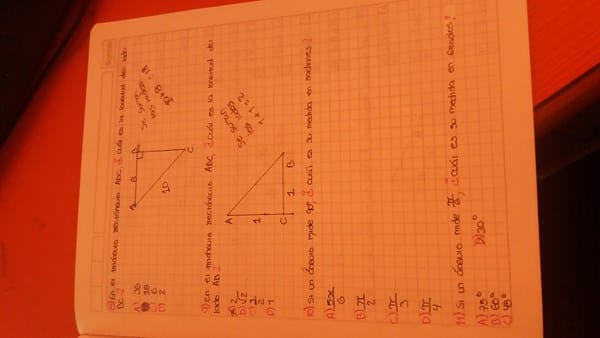 8) En el triángulo rectángulo ABC, ¿cuál es la longitud del lado
BC?
A) 36
B) 18
C) 6
D) 2
A
8
B
10
C
9) En el triángulo rectángulo ABC, ¿cuál es la longitud del
lado AB?
A) 2
B) √2
C) 3/2
D) 1
A
1
C
1
B
10) Si un ángulo mide 90°, ¿cuál es su medida en radianes?
A) 5π/6
B) π/2
C) π/3
D) π/4
11) Si un ángulo mide π/6, ¿cuál es su medida en grados?
A) 75°
B) 60°
C) 45°
D) 30°